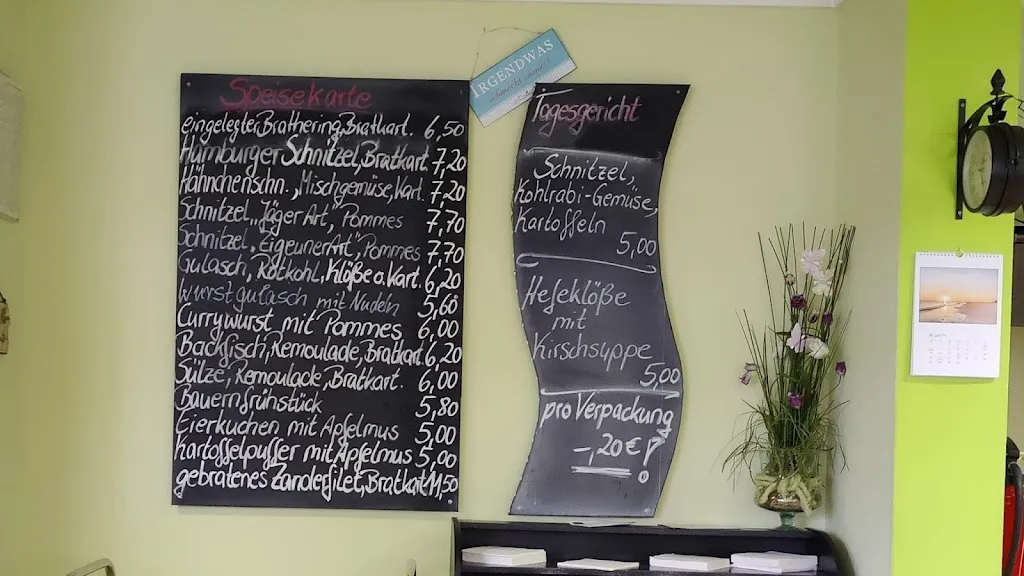 Speisekarte
eingelegter Brathering, Bratkart. 6,50
Hamburger Schnitzel, Bratkart. 7,20
Hähnchenschn., Mischgemüse, Kart. 7,20
Schnitzel „Jäger Art", Pommes 7,70
Schnitzel „Zigeuner Art", Pommes 7,70
Gulasch, Rotkohl, Klöße o. Kart. 6,20
Wurstgulasch mit Nudeln 5,60
Currywurst mit Pommes 6,00
Backfisch, Remoulade, Bratkart. 6,20
Sülze, Remoulade, Bratkart. 6,00
Bauernfrühstück 5,80
Eierkuchen mit Apfelmus 5,00
Kartoffelpuffer mit Apfelmus 5,00
gebratenes Zanderfilet, Bratkart. 11,50
IRGENDWAS
schmeckt immer!
Tagesgericht
Schnitzel,
Kohlrabi-Gemüse,
Kartoffeln
5,00
Hefeklöße
mit
Kirschsuppe
5,00
pro Verpackung
-,20€!